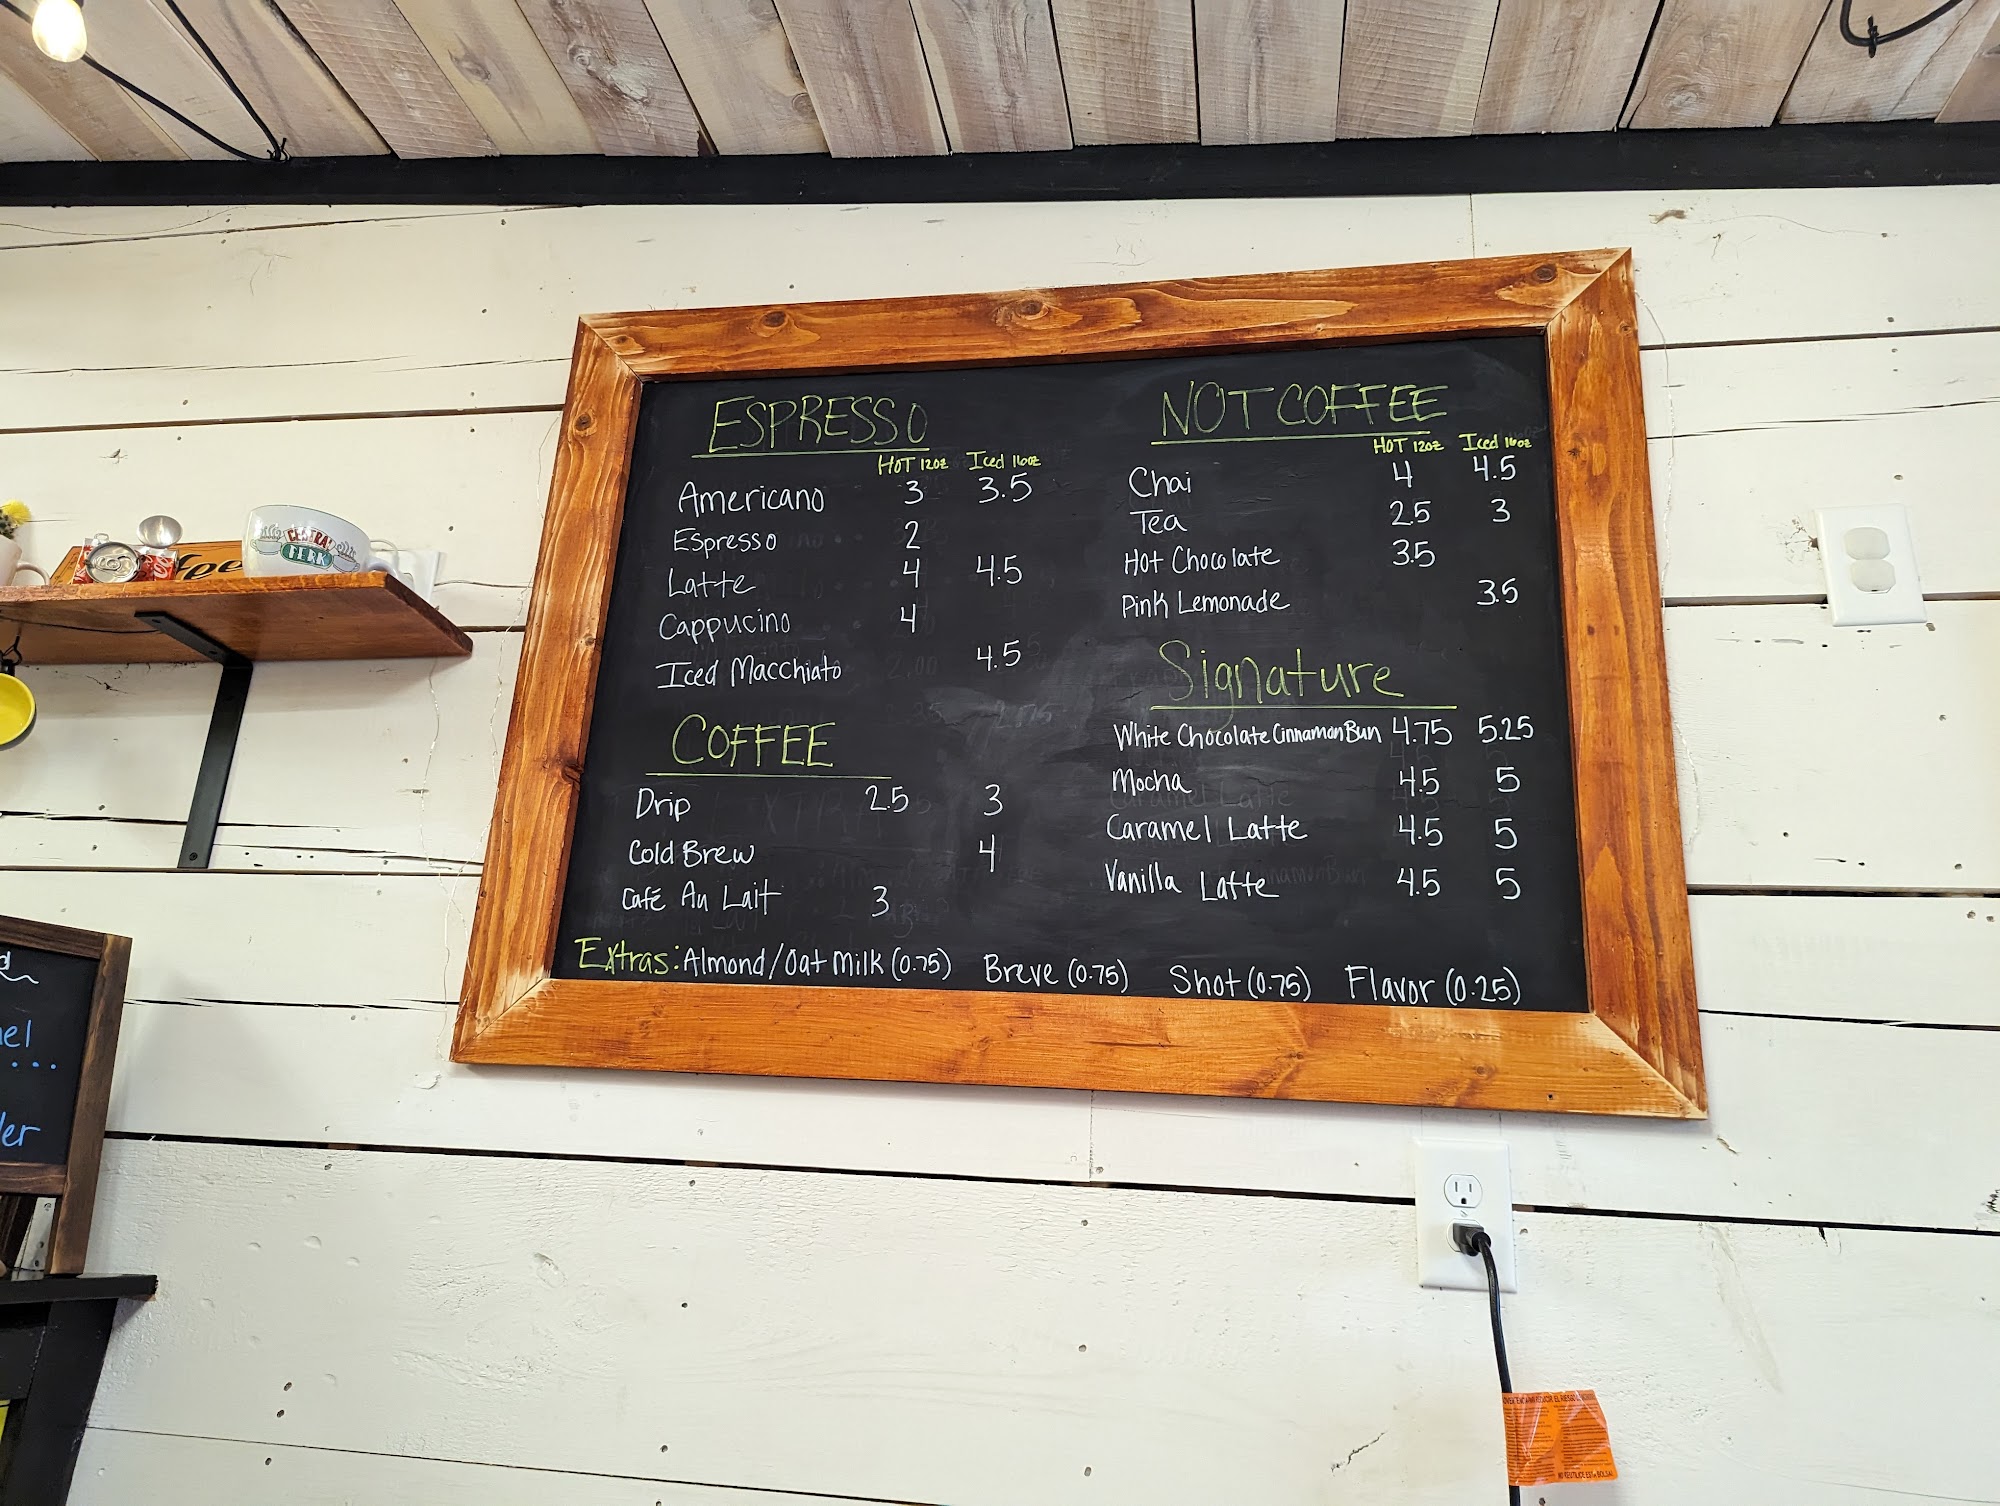 ESPRESSO
HOT 12oz Iced 16oz
Americano 3 3.5
Espresso 2
Latte 4 4.5
Cappucino 4
Iced Macchiato 4.5
COFFEE
Drip 2.5 3
Cold Brew 4
Café Au Lait 3
NOT COFFEE
HOT 12oz Iced 16oz
Chai 4 4.5
Tea 2.5 3
Hot Chocolate 3.5
Pink Lemonade 3.5
Signature
White Chocolate Cinnamon Bun 4.75 5.25
Mocha 4.5 5
Caramel Latte 4.5 5
Vanilla Latte 4.5 5
Extras: Almond/Oat Milk (0.75) Breve (0.75) Shot (0.75) Flavor (0.25)
CENTRAL
PERK